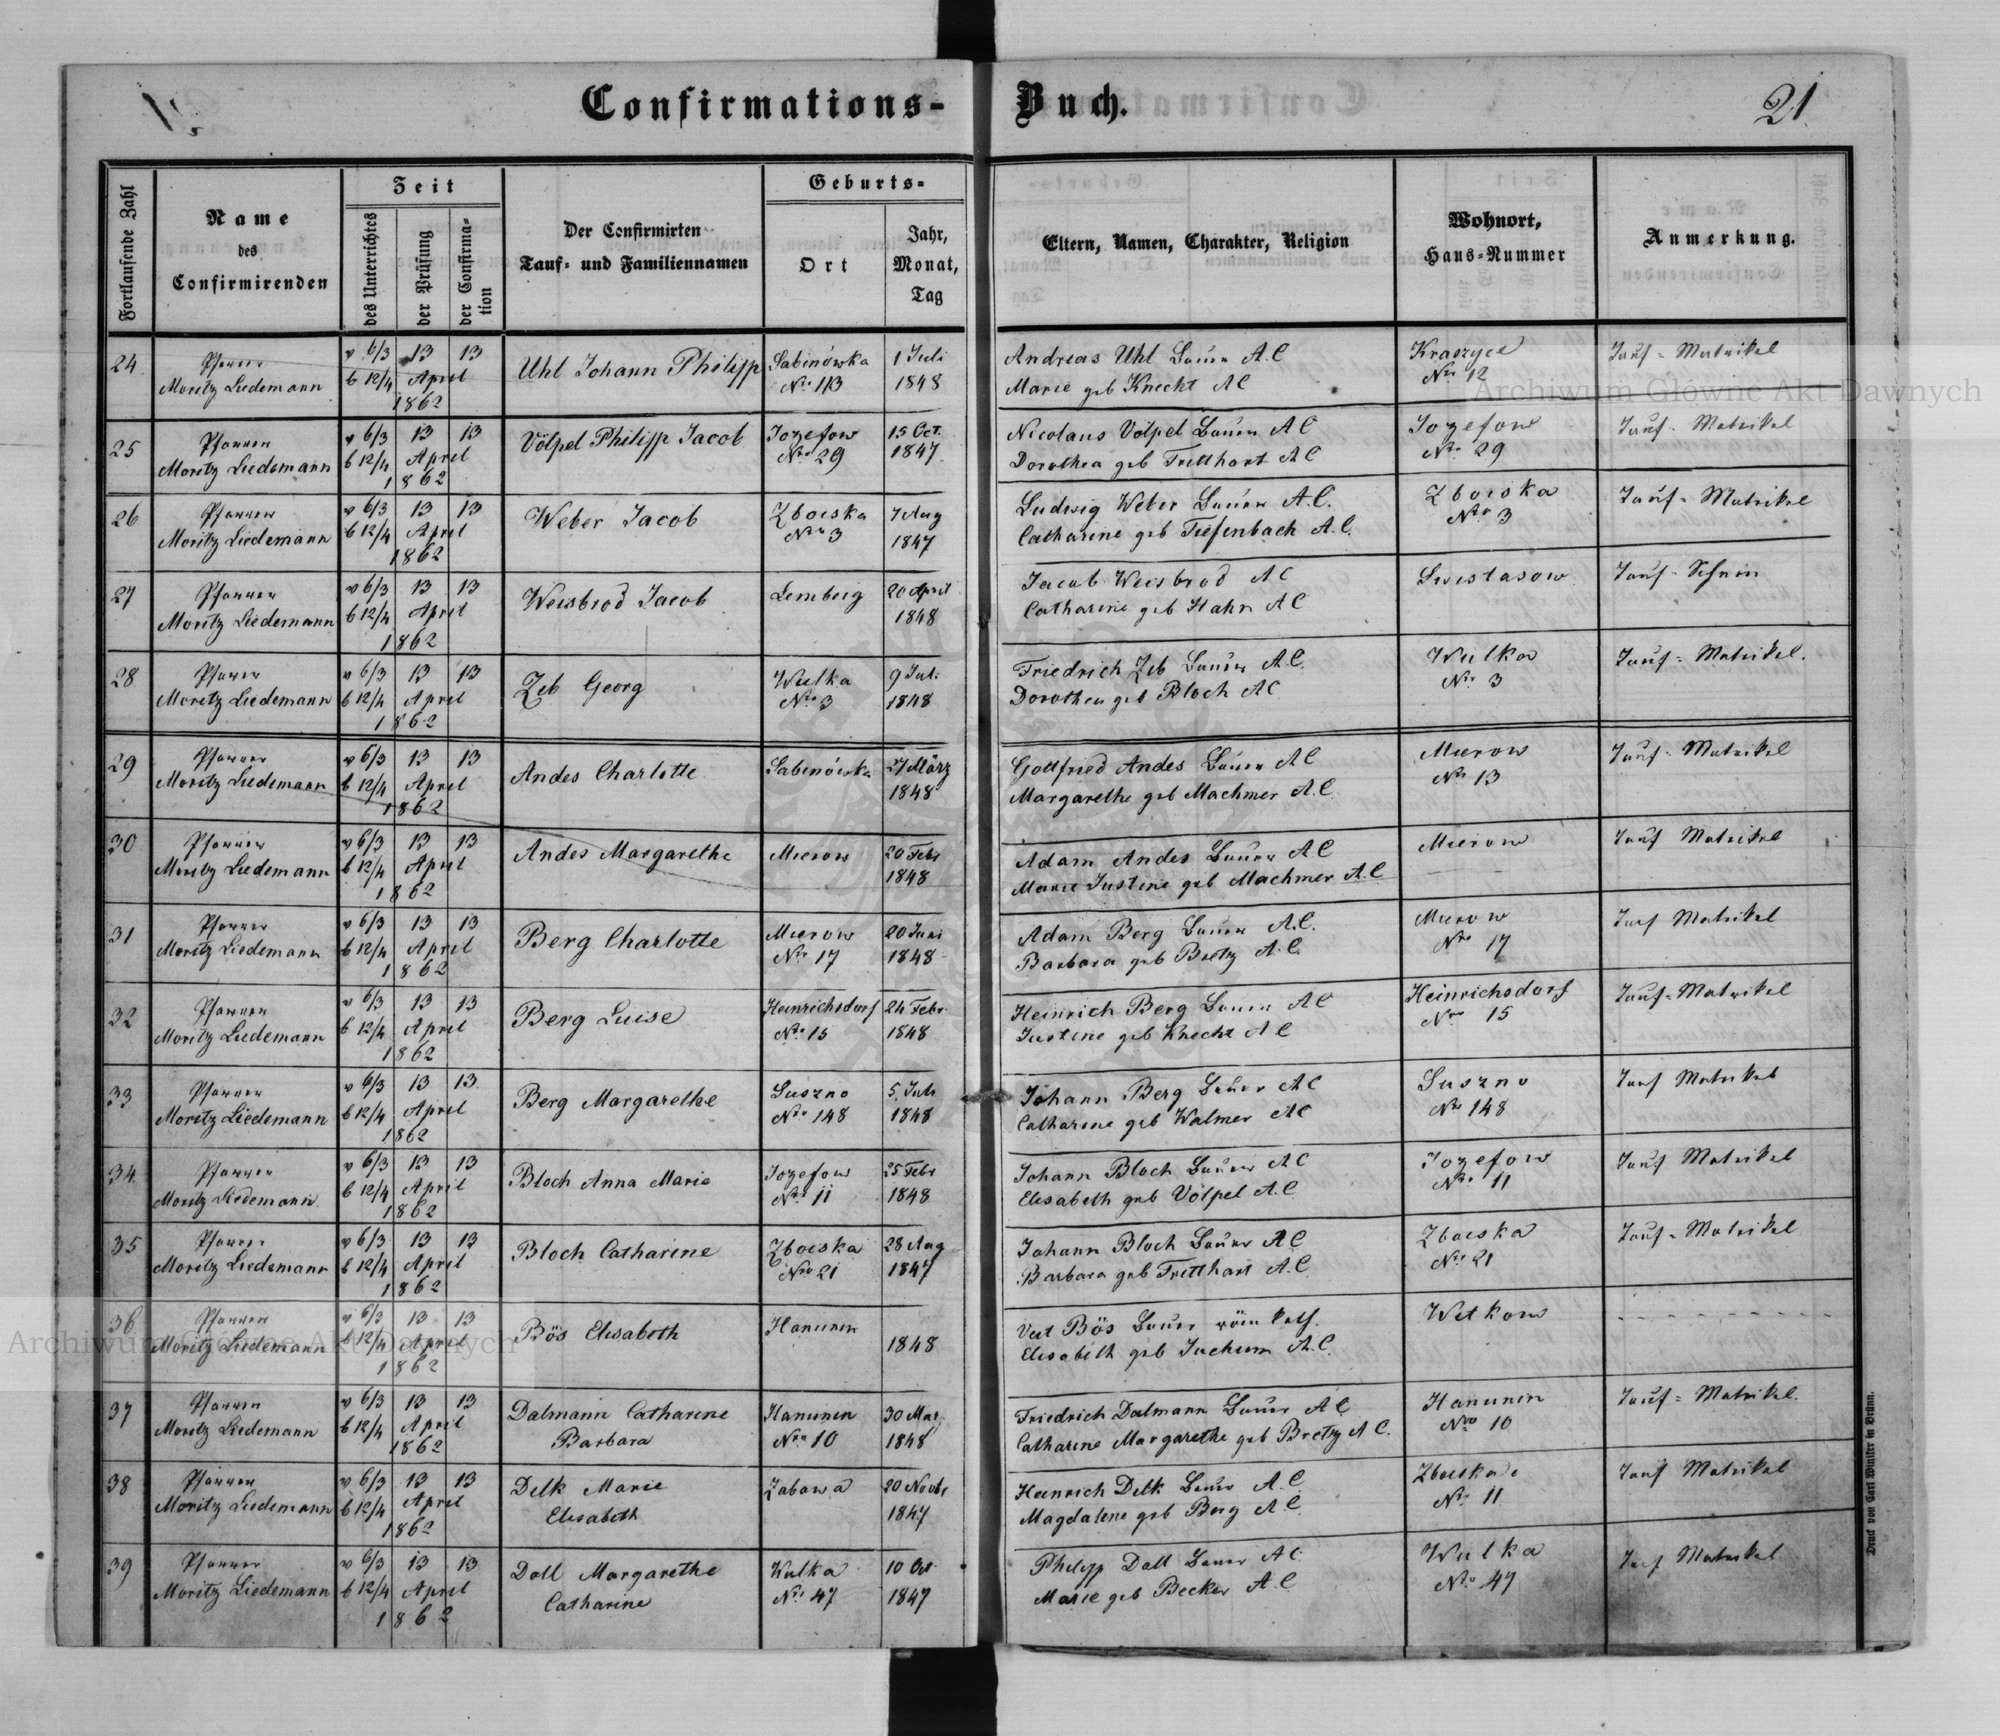 Confirmations-Buch.
21
Fortlaufende Zahl
Name des Confirmirenden
Zeit
des Unterrichtes
der Prüfung
der Confirmation
Der Confirmirten Tauf- und Familiennamen
Geburts-
Ort
Jahr, Monat, Tag
Eltern, Namen, Charakter, Religion
Wohnort, Haus-Nummer
Anmerkung.
24 Pfarrer v 6/3 13 13 Uhl Johann Philipp Sabinówka 1 Juli Andreas Uhl Bauer A.C Kraszyce Tauf-Matrikel
Moritz Liedemann b 12/4 April No. 113 1848 Marie geb Knecht AC Nro 12
1862
25 Pfarrer v 6/3 13 13 Völpel Philipp Jacob Jozefow 15 Oct. Nicolaus Völpel Bauer AC Jozefow Tauf-Matrikel
Moritz Liedemann b 12/4 April Nro 29 1847 Dorothea geb Tritthart AC Nro 29
1862
26 Pfarrer v 6/3 13 13 Weber Jacob Zboiska 7 Aug Ludwig Weber Bauer A.C. Zboiska Tauf-Matrikel
Moritz Liedemann b 12/4 April Nro 3 1847 Catharine geb Tiefenbach A.C. Nro 3
1862
27 Pfarrer v 6/3 13 13 Weisbrod Jacob Lemberg 20 April Jacob Weisbrod AC Swistasow Tauf-Schein
Moritz Liedemann b 12/4 April 1848 Catharine geb Hahn AC
1862
28 Pfarrer v 6/3 13 13 Zeb Georg Wulka 9 Juli Friedrich Zeb Bauer A.C. Wulka Tauf-Matrikel.
Moritz Liedemann b 12/4 April Nro 3 1848 Dorothea geb Bloch AC Nro 3
1862
29 Pfarrer v 6/3 13 13 Andes Charlotte Sabinówka 27 März Gottfried Andes Bauer AC Mierow Tauf-Matrikel
Moritz Liedemann b 12/4 April 1848 Margarethe geb Machmer A.C. Nro 13
1862
30 Pfarrer v 6/3 13 13 Andes Margarethe Mierow 20 Febr Adam Andes Bauer AC Mierow Tauf Matrikel
Moritz Liedemann b 12/4 April 1848 Marie Justine geb Machmer A.C
1862
31 Pfarrer v 6/3 13 13 Berg Charlotte Mierow 20 Juni Adam Berg Bauer A.C. Mierow Tauf Matrikel
Moritz Liedemann b 12/4 April Nro 17 1848 Barbara geb Bretz A.C. Nro 17
1862
32 Pfarrer v 6/3 13 13 Berg Luise Heinrichsdorf 24 Febr Heinrich Berg Bauer AC Heinrichsdorf Tauf-Matrikel
Moritz Liedemann b 12/4 April Nro 15 1848 Justine geb Knecht AC Nro 15
1862
33 Pfarrer v 6/3 13 13. Berg Margarethe Suszno 5. Juli Johann Berg Bauer AC Suszno Tauf Matrikel
Moritz Liedemann b 12/4 April Nro 148 1848 Catharine geb Walmer AC Nro 148
1862
34. Pfarrer v 6/3 13 13 Bloch Anna Marie Jozefow 25 Febr Johann Bloch Bauer AC Jozefow Tauf Matrikel
Moritz Liedemann b 12/4 April Nro 11 1848 Elisabeth geb Völpel A.C. Nro 11
1862
35 Pfarrer v 6/3 13 13 Bloch Catharine Zboiska 28 Aug Johann Bloch Bauer AC Zboiska Tauf-Matrikel
Moritz Liedemann b 12/4 April Nro 21 1847 Barbara geb Tritthart A.C. Nro 21
1862
36 Pfarrer v 6/3 13 13 Bös Elisabeth Hanunin Veit Bös Bauer röm kath. Witkow
Moritz Liedemann b 12/4 April 1848 Elisabeth geb Juchum A.C.
1862
37 Pfarrer v 6/3 13 13 Dalmann Catharine Hanunin 30 Mai Friedrich Dalmann Bauer AC Hanunin Tauf-Matrikel.
Moritz Liedemann b 12/4 April Barbara Nro 10 1848 Catharine Margarethe geb Bretz AC. Nro 10
1862
38 Pfarrer v 6/3 13 13 Delk Marie Zabawa 20 Novbr Heinrich Delk Bauer A.C Zboiska Tauf Matrikel
Moritz Liedemann b 12/4 April Elisabeth 1847 Magdalene geb Berg AC Nro 11
1862
39 Pfarrer v 6/3 13 13 Doll Margarethe Wulka 10 Oct Philipp Doll Bauer AC Wulka Tauf Matrikel
Moritz Liedemann b 12/4 April Catharine Nro 47 1847 Marie geb Becker A.C Nro 47
1862
Druck von Carl Winiker in Brünn.
Archiwum Główne Akt Dawnych
Archiwum Główne Akt Dawnych